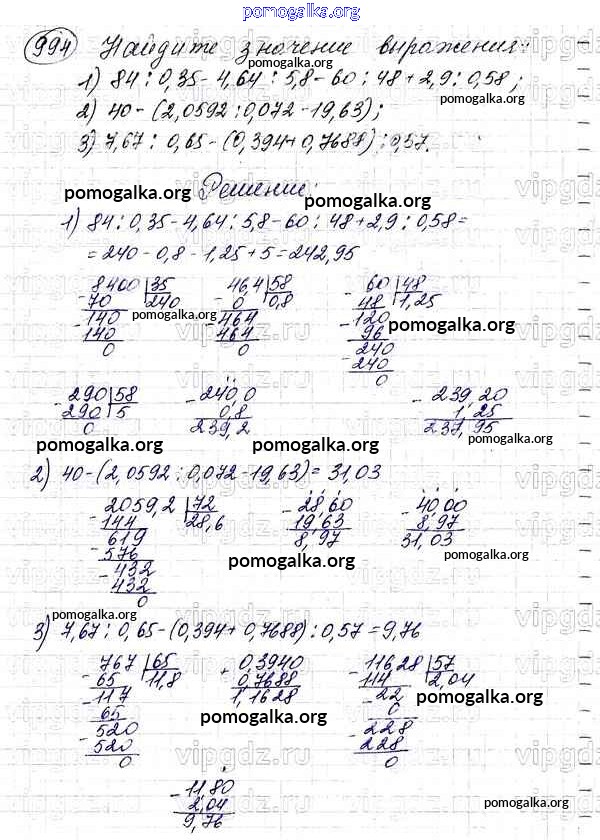 pomogalka.org
994 Найдите значение выражения:
1) 84 : 0,35 - 4,64 : 5,8 - 60 : 48 + 2,9 : 0,58;
2) 40 - (2,0592 : 0,072 - 19,63);
3) 7,67 : 0,65 - (0,394 + 0,7688) : 0,57.
pomogalka.org Решение: pomogalka.org
1) 84 : 0,35 - 4,64 : 5,8 - 60 : 48 + 2,9 : 0,58 =
= 240 - 0,8 - 1,25 + 5 = 242,95
8400 35 46,4 58 60 48
70 240 0 0,8 48 1,25
140 464 120
140 464 96
0 0 240
240
0
pomogalka.org pomogalka.org pomogalka.org
290 58 240,0 239,20
290 5 0,8 1,25
0 239,2 237,95
pomogalka.org pomogalka.org pomogalka.org
2) 40 - (2,0592 : 0,072 - 19,63) = 31,03
2059,2 72 28,60 40,00
144 28,6 19,63 8,97
619 8,97 31,03
576
432
432
0
pomogalka.org pomogalka.org
pomogalka.org
3) 7,67 : 0,65 - (0,394 + 0,7688) : 0,57 = 9,76
767 65 0,3940 116,28 57
65 11,8 0,7688 114 2,04
117 1,1628 22
65 0
520 228
520 228
0 0
pomogalka.org pomogalka.org
11,80
2,04
9,76
pomogalka.org pomogalka.org
vipgdz.ru